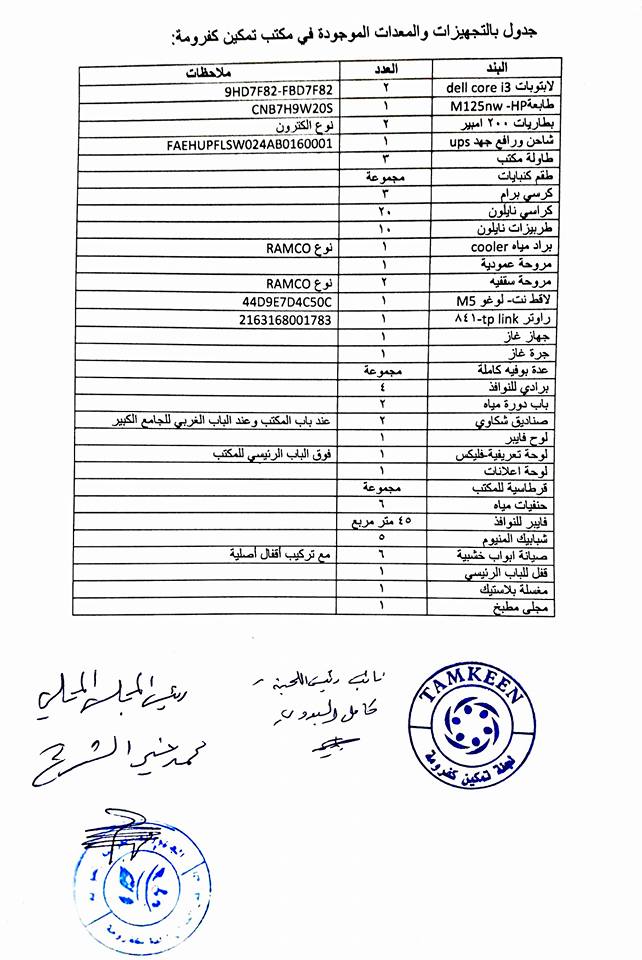 جدول بالتجهيزات والمعدات الموجودة في مكتب تمكين كفرومة:
البند العدد ملاحظات
لابتوبات dell core i3 ٢ 9HD7F82-FBD7F82
طابعة M125nw -HP ١ CNB7H9W20S
بطاريات ٢٠٠ امبير ٢ نوع الكترون
شاحن ورافع جهد ups ١ FAEHUPFLSW024AB0160001
طاولة مكتب ٣
طقم كنبايات مجموعة
كرسي برام ٣
كراسي نايلون ٢٠
طربيزات نايلون ١٠
براد مياه cooler ١ نوع RAMCO
مروحة عمودية ١
مروحة سقفيه ٢ نوع RAMCO
لاقط نت- لوغو M5 ١ 44D9E7D4C50C
راوتر tp link-٨٤١ ١ 2163168001783
جهاز غاز ١
جرة غاز ١
عدة بوفيه كاملة مجموعة
برادي للنوافذ ٤
باب دورة مياه ٢
صناديق شكاوي ٢ عند باب المكتب وعند الباب الغربي للجامع الكبير
لوح فايبر ١
لوحة تعريفية-فليكس ١ فوق الباب الرئيسي للمكتب
لوحة اعلانات ١
قرطاسية للمكتب مجموعة
حنفيات مياه ٦
فايبر للنوافذ ٤٥ متر مربع
شبابيك المنيوم ٥
صيانة ابواب خشبية ٦ مع تركيب أقفال أصلية
قفل للباب الرئيسي ١
مغسلة بلاستيك ١
مجلى مطبخ ١
TAMKEEN
لجنة تمكين كفرومة
نائب رئيس اللجنة
كامل
رئيس المجلس المحلي
محمد